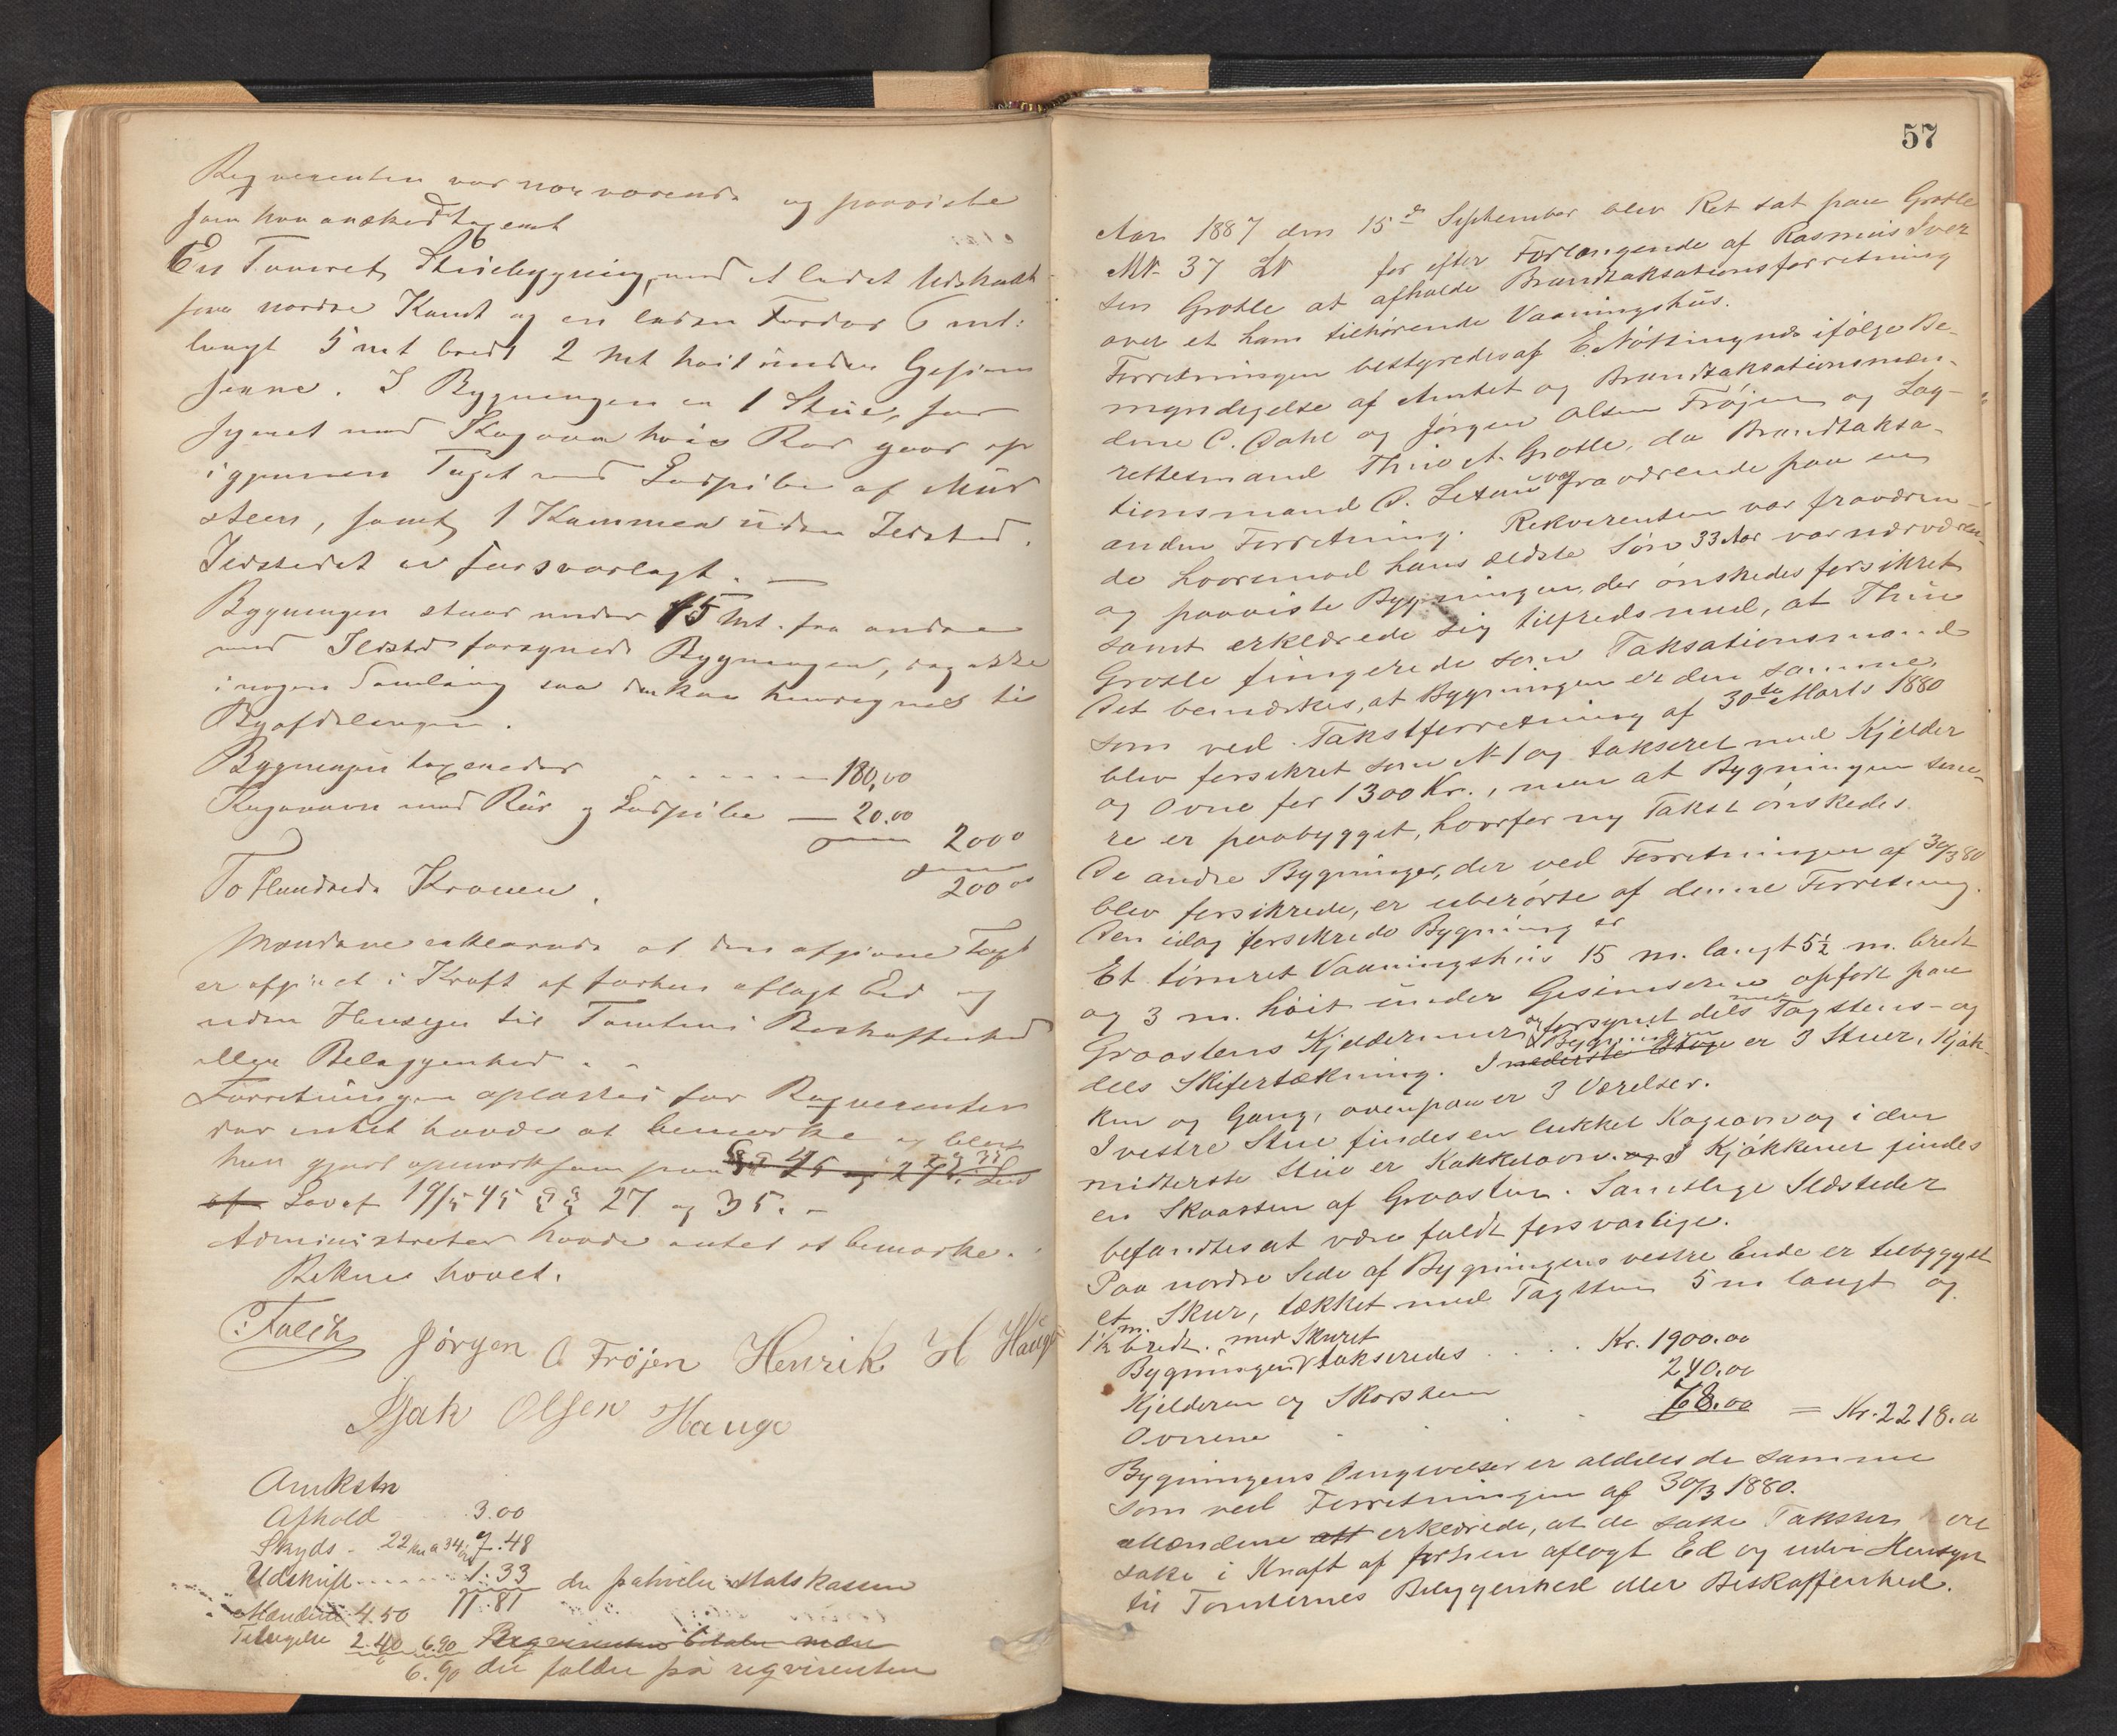 Reqvirenten var nærværende og paaviste
som han ønskede taxeret
En Tømret Stuebygning, med et lidet Udskudt
paa nordre Kant og en liden Fordør 6 mt:
langt 5 mt bredt 2 mt høit under Gesims
serne. I Bygningen er 1 Stue, for
synet med Kogeovn hvis Rør gaar op
igjennem Taget med Ledpibe af Mur
steen, samt 1 Kammer uden Ildsted.
Ildstedet er forsvarlagt. —
Bygningen staar under 15 mt. fra andre
med Ildsted forsynede Bygninger, dog ikke
i nogen Samling saa den kan henregnes til
Byafdelingen.
Bygningen taxeredes 180,00
Kogeovn med Rør og Ledpibe — 20.00
200 00
To Hundrede Kroner. 200 00
Mændene erklærede at den afgivne Taxt
er afgivet i Kraft af forhen aflagt Ed og
uden Hensyn til Tomtens Beskaffenhed
eller Beliggenhed.
Forretningen oplæstes for Reqvirenten
der intet havde at bemærke og blev
han gjort opmærksom paa
af Lov af 19/5 45 §§ 27 og 35. —
Administrator havde intet at bemærke.
Retten hævet.
Falch Jørgen O Frøjen Henrik H Hauge
Isak Olsen Hauge
Afhold 3.00
Skyds - 22 km a 34 øre 7.48
Udskrift 1.33
11.81 der Statskassen
Mændene 4.50
Tilsigelse 2.40 6.90 Reqvirenten betaler
6.90 der falder på reqvirenten
57
Aar 1887 den 15de September blev Ret sat paa Grotle
MN. 37 LN for efter Forlangende af Rasmus Iver
sen Grotle at afholde Brandtaksationsforretning
over et ham tilhørende Vaaningshus.
Forretningen bestyredes af E. Nøttingnæs ifølge Be-
myndigelse af Amtet og Brandtaksationsmæn-
dene C. Dahl og Jørgen Olsen Frøjen og Lag-
rettesmand Thue A. Grotle, da Brandtaksa-
tionsmand var fraværende paa en
anden Forretning. Rekvirenten var fraværen-
de hvorimod hans ældste Søn 33 Aar var nærværen-
og paaviste Bygningen, der ønskedes forsikret
samt erklærede sig tilfreds med, at Thue
Grotle fungerede som Taksationsmand
Det bemærkes, at Bygningen er den samme,
som ved Takstforretning af 30te Marts 1880
blev forsikret som N 1 og takseret med Kjelder
og Ovne for 1300 Kr., men at Bygningen sene-
re er paabygget, hvorfor ny Takst ønskedes.
De andre Bygninger, der ved Forretningen af 30/3 80
blev forsikrede, er uberørte af denne Forretning.
Den idag forsikrede Bygning er
Et tømret Vaaningshus 15 m. langt 5½ m. bredt
og 3 m. høit under Gesimserne opført paa
Graastens Kjeldermur og forsynet dels med Tagstens- og
dels Skifertækning. I nederste Etage Bygningen er 3 Stuer, Kjøk-
ken og Gang, ovenpaa er 3 Værelser.
I vestre Stue findes en lukket Kogeovn og i den
midterste Stue er Kakkelovn. og I Kjøkkenet findes
en Skorsten af Graasten. Samtlige Ildsteder
befandtes at være fuldt forsvarlige.
Paa nordre Side af Bygningens vestre Ende er tilbygget
et Skur, tækket med Tagsten 5 m langt og
1½ m. bredt.
Bygningen med Skuret takseredes . . . . Kr. 1900.00
Kjelderen og Skorsten 240.00
Ovnene 78.00 = Kr. 2218.00
Bygningens Omgivelser er aldeles de samme
som ved Forretningen af 30/3 1880.
Mændene att erklærede, at de satte Takster ere
satte i Kraft af forhen aflagt Ed og uden Hensyn
til Tomternes Beliggenhed eller Beskaffenhed.